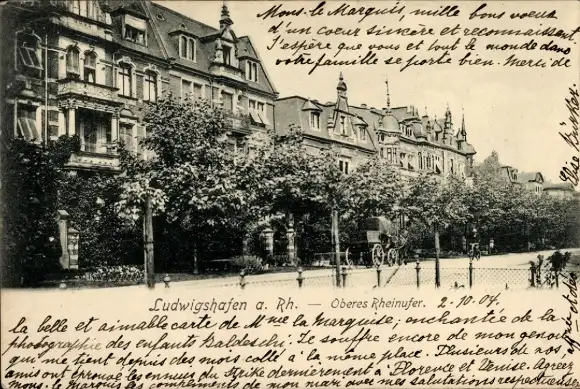 Mons. le Marquis, mille bons voeux
d'un coeur sincère et reconnaissant
J'espère que vous et tout le monde dans
votre famille se porte bien. Merci de
Ludwigshafen a. Rh. — Oberes Rheinufer. 2-10-04.
la belle et aimable carte de Mme la Marquise, enchantée de la
photographie des enfants Baldeschi. Je souffre encore de mon genou
qui me tient depuis des mois collé à la même place. Plusieurs de nos
amis ont éprouvé les ennuis du Strike dernièrement à Florence et Venise. Agréez
Mons. le Marquis les compléments de mon mari avec mes salutations respectueuses